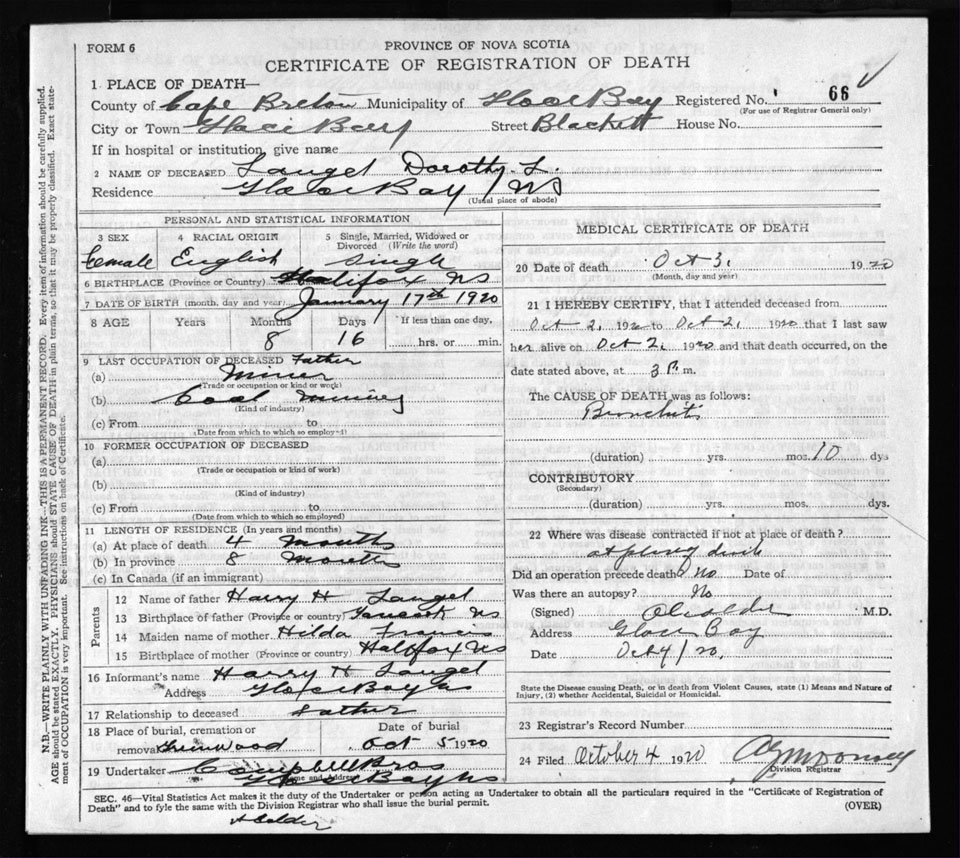 FORM 6
PROVINCE OF NOVA SCOTIA
CERTIFICATE OF REGISTRATION OF DEATH
1 PLACE OF DEATH—
County of Cape Breton Municipality of Glace Bay Registered No. 66
(For use of Registrar General only)
City or Town Glace Bay Street Blackett House No.
If in hospital or institution, give name
2 NAME OF DECEASED Langel Dorothy. L.
Residence Glace Bay / NS
(Usual place of abode)
PERSONAL AND STATISTICAL INFORMATION
3 SEX 4 RACIAL ORIGIN 5 Single, Married, Widowed or Divorced (Write the word)
Female English Single
6 BIRTHPLACE (Province or Country) Halifax NS
7 DATE OF BIRTH (month, day and year) January 17th 1920
8 AGE Years Months Days If less than one day,
8 16 hrs. or min.
9 LAST OCCUPATION OF DECEASED Father
(a) Miner
(Trade or occupation or kind or work)
(b) Coal Mining
(Kind of industry)
(c) From to
(Date from which to which so employed)
10 FORMER OCCUPATION OF DECEASED
(a)
(Trade or occupation or kind of work)
(b)
(Kind of industry)
(c) From to
(Date from which to which so employed)
11 LENGTH OF RESIDENCE (In years and months)
(a) At place of death 4 months
(b) In province 8 months
(c) In Canada (if an immigrant)
Parents
12 Name of father Harry H Langel
13 Birthplace of father (Province or country) Tancook NS
14 Maiden name of mother Hilda Francis
15 Birthplace of mother (Province or country) Halifax NS
16 Informant's name Harry H Langel
Address Glace Bay NS
17 Relationship to deceased Father
18 Place of burial, cremation or Date of burial
removal Greenwood Oct 5 1920
19 Undertaker Campbell Bros
Name and Address Glace Bay NS
MEDICAL CERTIFICATE OF DEATH
20 Date of death Oct 3, 1920
(Month, day and year)
21 I HEREBY CERTIFY, that I attended deceased from
Oct 2, 1920 to Oct 2, 1920 that I last saw
her alive on Oct 2, 1920 and that death occurred, on the
date stated above, at 3 P. m.
The CAUSE OF DEATH was as follows:
Bronchitis
(duration) yrs. mos. 10 dys
CONTRIBUTORY
(Secondary)
(duration) yrs. mos. dys.
22 Where was disease contracted if not at place of death?
at place death
Did an operation precede death? No Date of
Was there an autopsy? No
(Signed) M.D.
Address Glace Bay
Date Oct 4/20,
State the Disease causing Death, or in death from Violent Causes, state (1) Means and Nature of
Injury, (2) whether Accidental, Suicidal or Homicidal.
23 Registrar's Record Number
24 Filed October 4 1920
Division Registrar
SEC. 46—Vital Statistics Act makes it the duty of the Undertaker or person acting as Undertaker to obtain all the particulars required in the "Certificate of Registration of
Death" and to fyle the same with the Division Registrar who shall issue the burial permit. (OVER)
H Calder
N.B.—WRITE PLAINLY WITH UNFADING INK—THIS IS A PERMANENT RECORD. Every item of information should be carefully supplied.
AGE should be stated EXACTLY. PHYSICIANS should STATE CAUSE OF DEATH in plain terms, so that it may be properly classified. Exact state-
ment of OCCUPATION is very important. See instructions on back of Certificate.